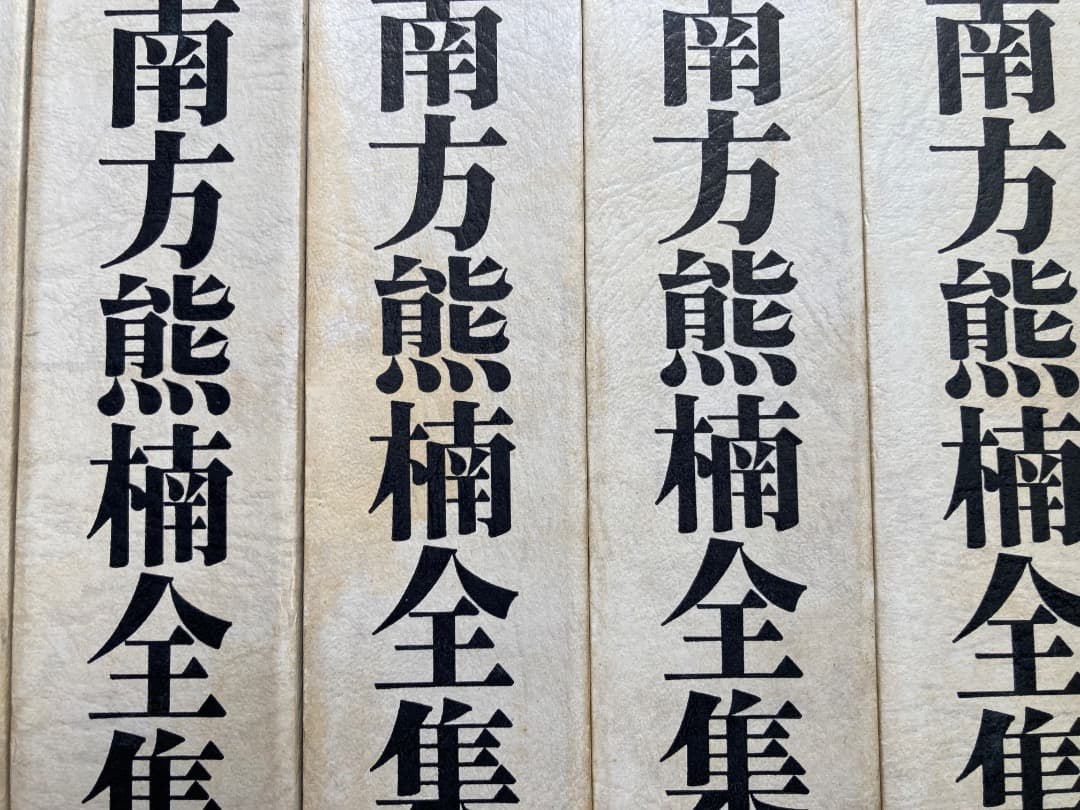 南方熊楠全集
南方熊楠全集
南方熊楠全集
南方熊楠全集